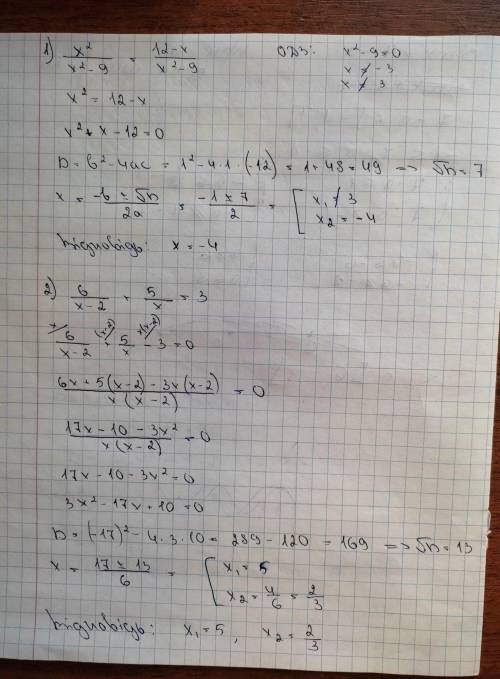 1) x²/(x²-9) = (12-x)/(x²-9)   ОДЗ: x²-9=0
x ≠ -3
x² = 12-x   x ≠ 3
x² + x - 12 = 0
D = b² - 4ac = 1² - 4·1·(-12) = 1+48 = 49 => √D = 7
x = (-b ± √D)/2a = (-1 ± 7)/2 = [ x₁ ≠ 3
x₂ = -4
Відповідь: x = -4
2) 6/(x-2) + 5/x = 3
x/ 6/(x-2) + (x-2)/ 5/x - x(x-2)/ 3 = 0
(6x + 5(x-2) - 3x(x-2))/(x(x-2)) = 0
(17x - 10 - 3x²)/(x(x-2)) = 0
17x - 10 - 3x² = 0
3x² - 17x + 10 = 0
D = (-17)² - 4·3·10 = 289 - 120 = 169 => √D = 13
x = (17 ± 13)/6 = [ x₁ = 5
x₂ = 4/6 = 2/3
Відповідь: x₁ = 5, x₂ = 2/3